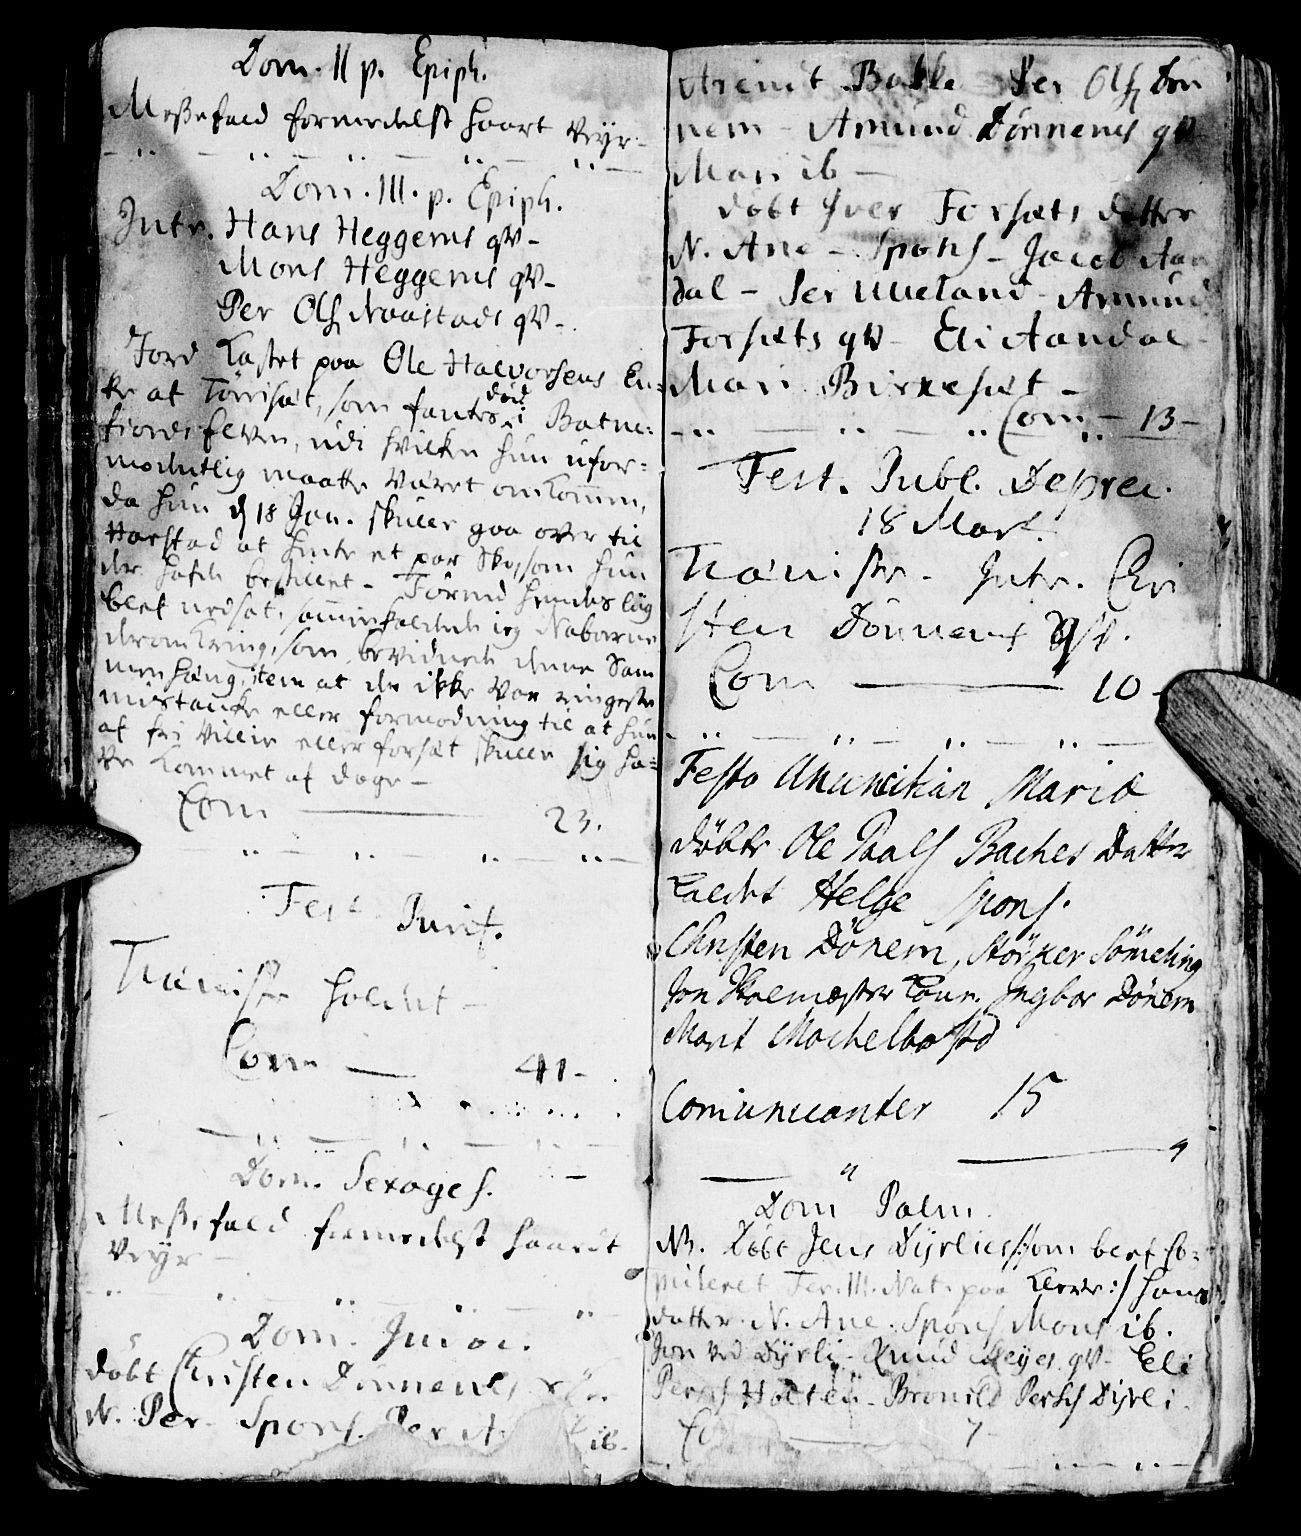 Dom. II p. Epiph.
Messefald formedelst haart Veyr-
Dom. III. p. Epiph.
Intr. Hans Heggems qv-
Mons Heggems qv-
Per Ols Naastads qv-
Jord kastet paa Ole Halvorsens En-
ke at Tørriset, som fantes død i Batne-
fiords Elven, udi hvilken hun ufor-
modentlig maatte været omkommen,
da hun d 18 Jan. skulle gaa over til
Harstad at hente et par Sko, som hun
der hafde bestillet - Førend hendes liig
blef nedsat, sammenkaldede ieg Naboerne
deromkring, som bevidnede denne Sam
menhæng, item at der ikke var ringeste
mistanke eller formodning til at hun
af fri villie eller forsæt skulle sig ha-
ve kommet af dage -
Com 23.
Fest Purif.
Tienniste holdet -
Com 41-
Dom. Sexages.
Messefald formedelst haardt
Veyr -
Dom. Juica.
døbt Christen Dønnems
N. Per- Spons. Per ib-
Arent Bolle Per Ols Døn
nem - Amund Dønnems qv
Mari ib -
døbt Iver Forsets datter
N. Ane - Spons - Jacob Aan
dal - Per Uveland - Amund
Forsets qv - Eli Aandal -
Mari Birkeset -
Com - 13-
Fest. Publ. Deprec.
18 Mart.
Tieniste - Intr. Chri
sten Dønnems qv.
Com 10-
Festo Anuncitian Mariæ
døbte Ole Paals Baches Datter
kaldet Helge Spons.
Christen Dønem, Størker Sømeling
Jon Skolmester Ingbor Dønem
Marit Mochelbostd
Comunicanter 15
Dom Palm.
NB. Døbt Jens Dyrlies /: som blef ho-
mileret Fer. III. Nat. paa Qverne :/ hans
datter N. Ane. Spons Mons ib.
Jon ved Dyrli - Knud Høyes qv- Eli
Pers Holten - Bronild Persd Dyrli.
Co 7-